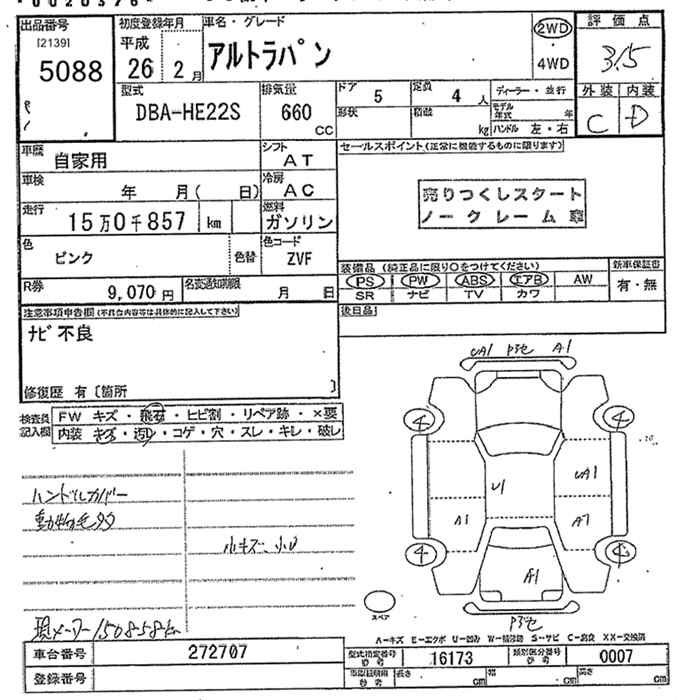 出品番号
[2139]
5088
初度登録年月
平成
26 2月
車名・グレード
アルトラパン
2WD
・
4WD
評価点
3.5
外装 内装
C D
型式
DBA-HE22S
排気量
660
CC
ドア 5
定員 4 人
形状
積載 kg
ディーラー・並行
モデル年式 年
ハンドル 左・右
車歴 自家用
シフト AT
車検 年 月( 日)
冷房 AC
走行 15万0千857 km
燃料 ガソリン
色 ピンク
色替
色コード ZVF
R券 9,070 円
名変通知期限 月 日
セールスポイント(正常に機能するものに限ります)
売りつくしスタート
ノークレーム車
装備品 (純正品に限り○をつけてください)
PS PW ABS エアB AW
SR ナビ TV カワ
新車保証書
有・無
後日品
注意事項申告欄(不具合内容等は具体的に記入して下さい)
ナビ不良
修復歴 有〔箇所 〕
検査員記入欄
FW キズ・飛石・ヒビ割・リペア跡・×要
内装 キズ・汚れ・コゲ・穴・スレ・キレ・破レ
ハンドルカバー
動物毛
小キズ、小U
現メーター150858km
UA1 P3乞 A1
4 4
UA1
U1
A1 A1
4 4
A1
P3乞
スペア
A-キズ E-エクボ U-凹み W-補修跡 S-サビ C-腐食 XX-交換済
車台番号 272707
登録番号
型式指定番号
参考 16173
類別区分番号
参考 0007
参考
長さ cm
幅 cm
高さ cm